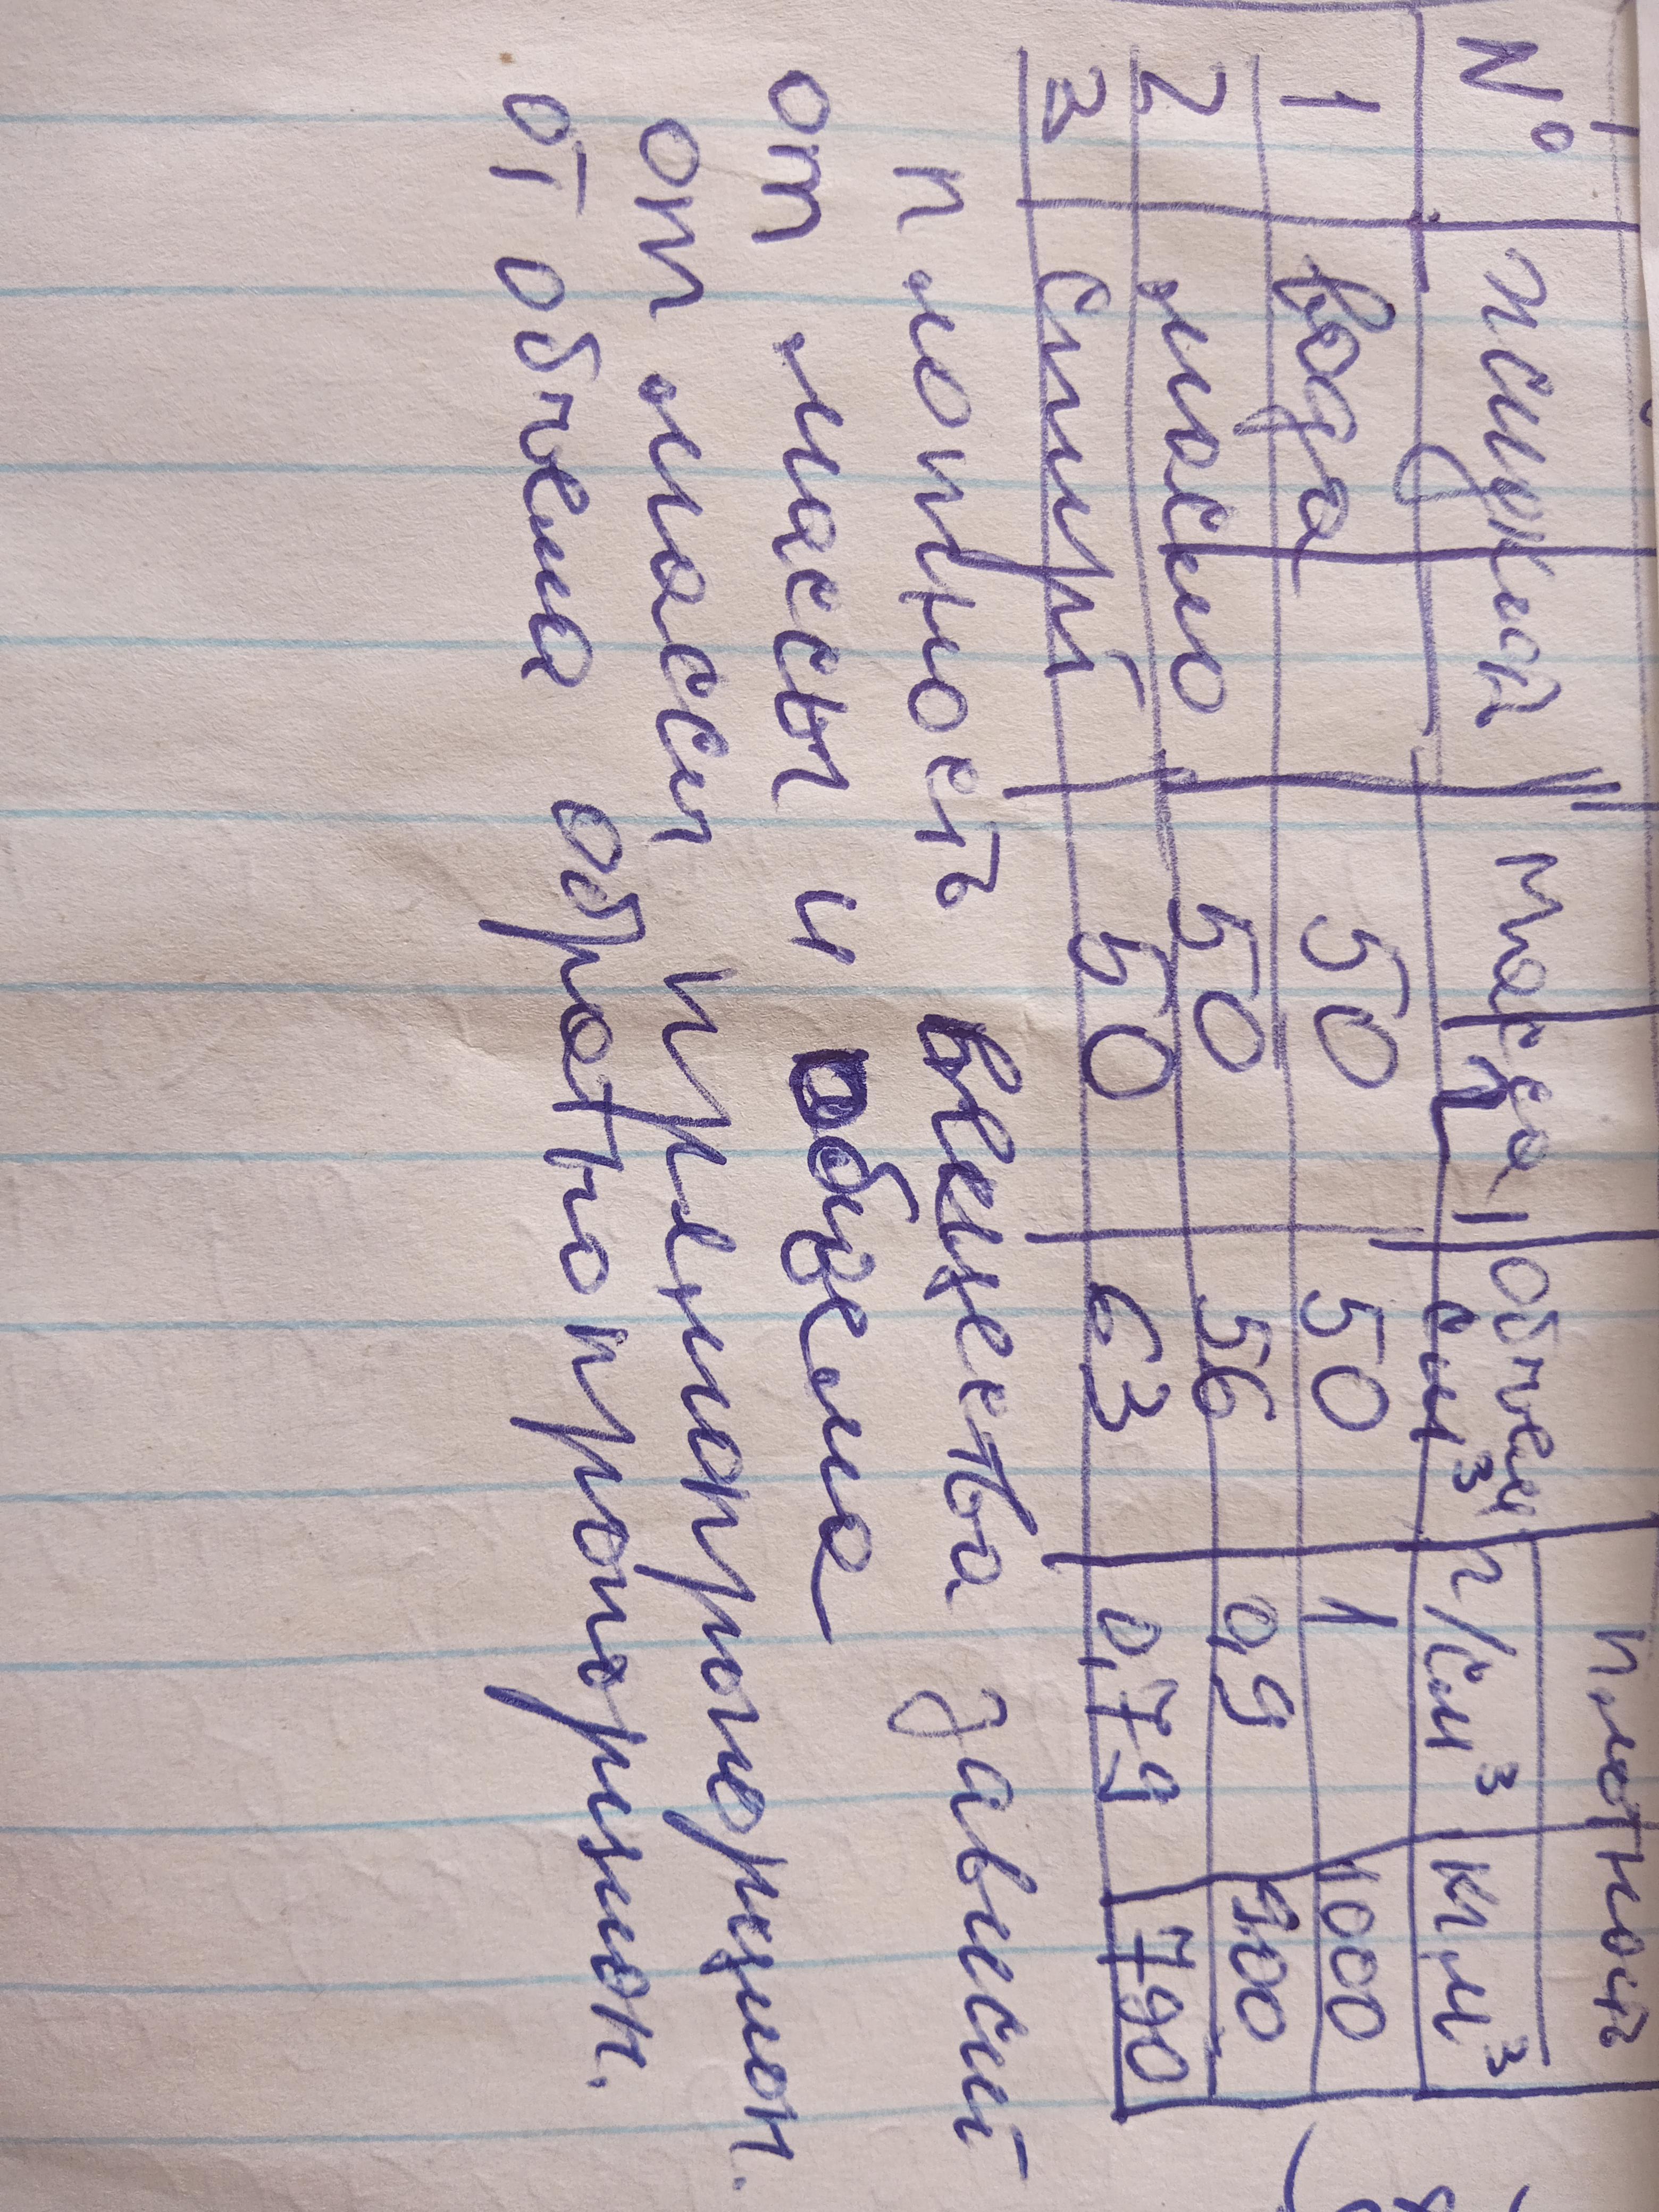 № жидкост масса объем плотност
г см³ г/см³ кг/м³
1 вода 50 50 1 1000
2 масло 50 56 0,9 900
3 спирт 50 63 0,79 790
плотность вещества зависит
от массы и объема
от массы прямопропорцион.
от объема обратнопропорцион.